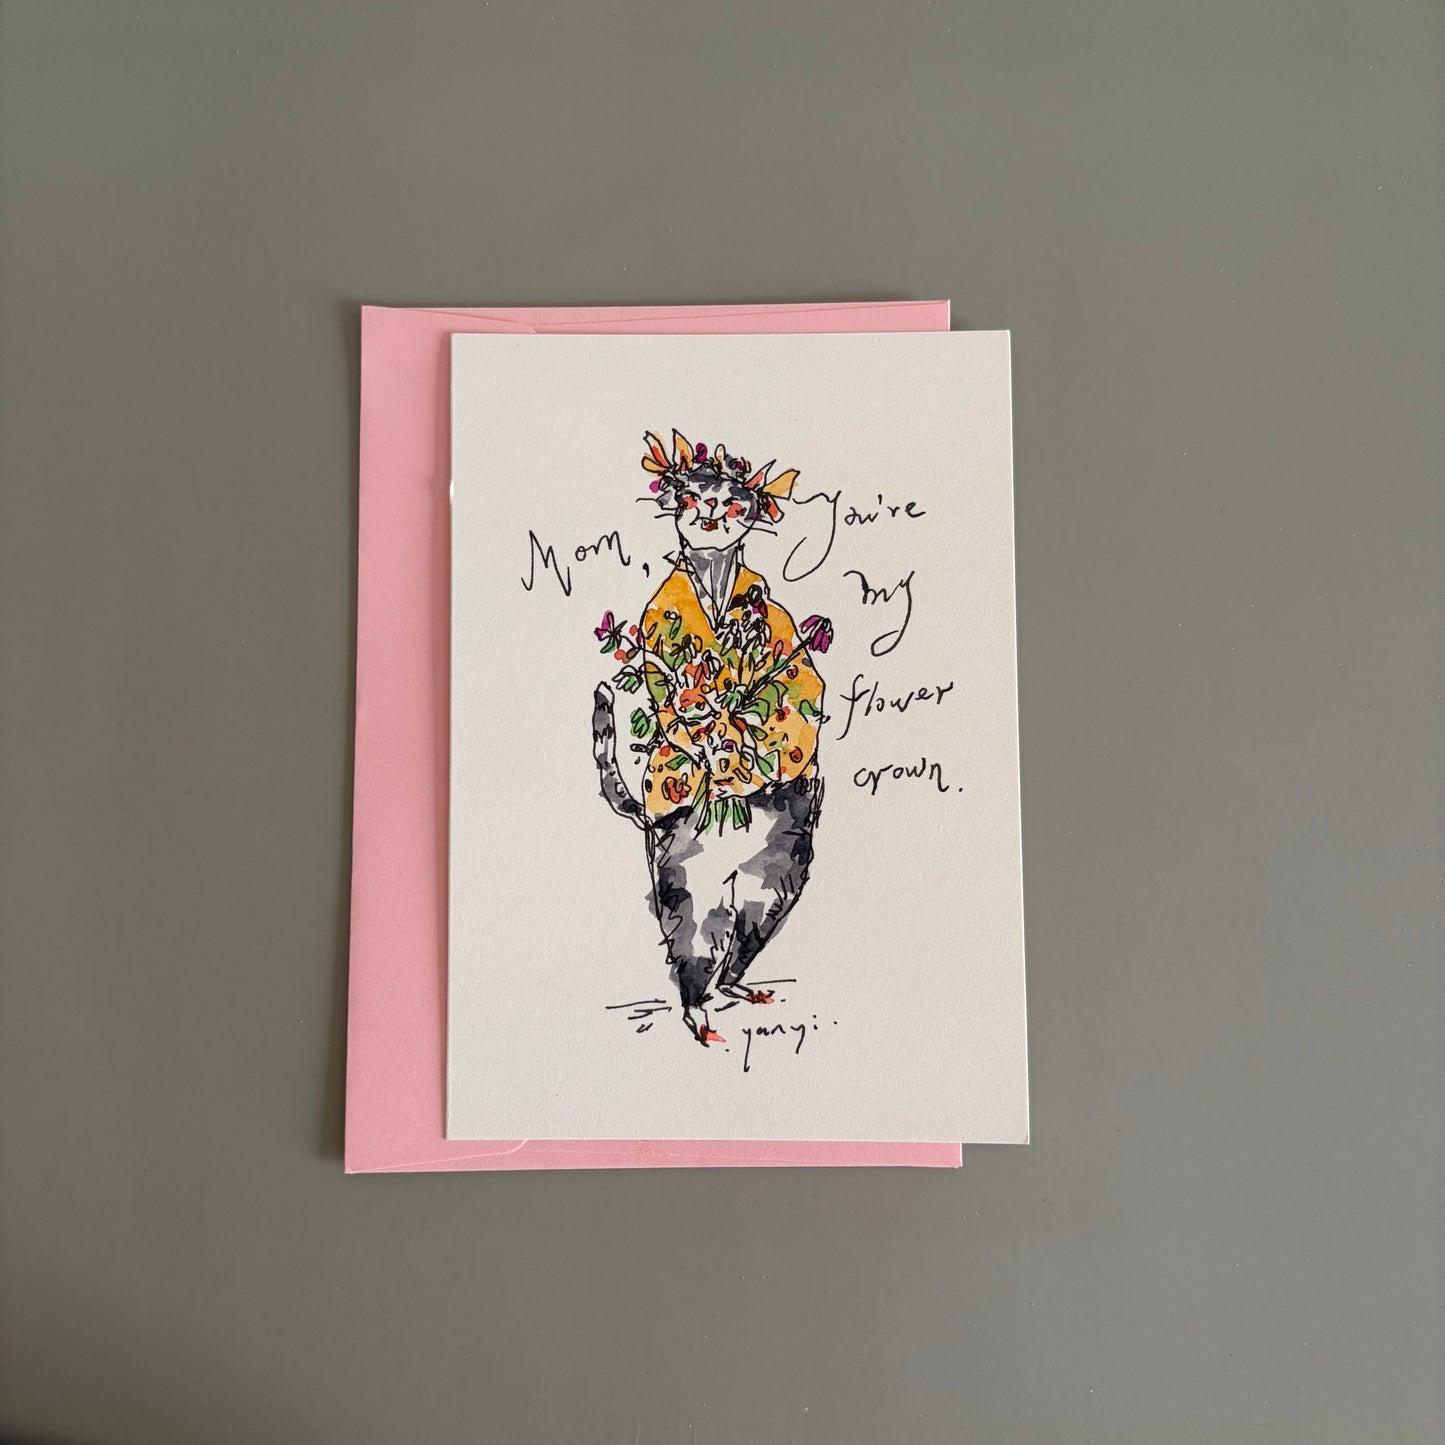 Mom,
You're
my
flower
crown.
. yanyi .